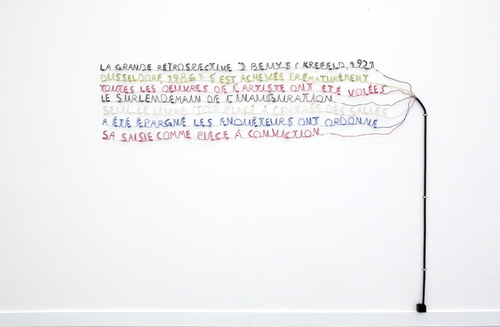 LA GRANDE RETROSPECTIVE J BEUYS ( KREFELD, 1921
DUSSELDORF, 1986) S EST ACHEVEE PREMATUREMENT
TOUTES LES OEUVRES DE L'ARTISTE ONT ÉTÉ VOLÉES
LE SURLENDEMAIN DE L'INAUGURATION.
SEUL LE LIVRE PLACÉ À L'ENTRÉE DES SALLES
A ÉTÉ ÉPARGNÉ LES ENQUÊTEURS ONT ORDONNE
SA SAISIE COMME PIECE À CONVICTION.